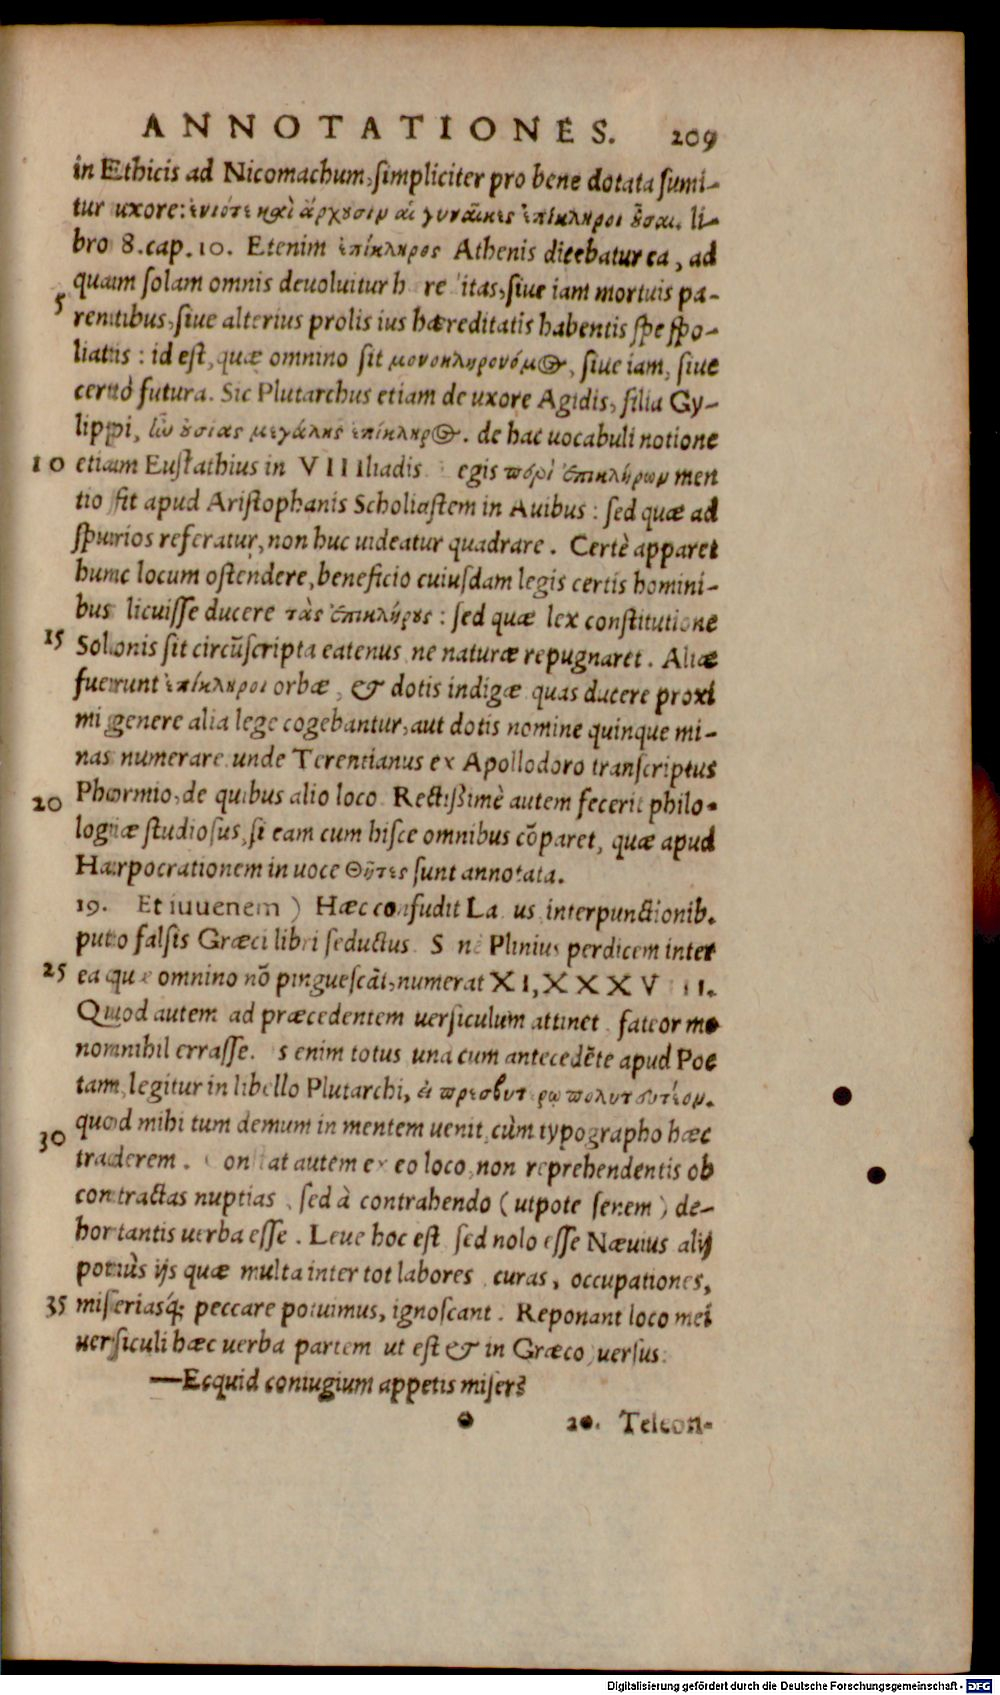 ANNOTATIONES. 209
in Ethicis ad Nicomachum, simpliciter pro bene dotata sumi-
tur uxore: ἐνιότε καὶ ἄρχουσιν αἱ γυναῖκες ἐπίκληροι οὖσαι. li-
bro 8. cap. 10. Etenim ἐπίκληρος Athenis dicebatur ea, ad
quam solam omnis devoluitur h re itas, siue iam mortuis pa-
5 rentibus, siue alterius prolis ius hæreditatis habentis spe spo-
liatus: id est, quæ omnino sit μονοκληρονόμος, siue iam, siue
certò futura. Sic Plutarchus etiam de uxore Agidis, filia Gy-
lippi, ὖν οὐσίας μεγάλης ἐπίκληρος. de hac uocabuli notione
10 etiam Eustathius in VII Iliadis. egis περὶ ἐπικλήρων men
tio fit apud Aristophanis Scholiastem in Auibus: sed quæ ad
spurios referatur, non huc uideatur quadrare. Certè apparet
hunc locum ostendere, beneficio cuiusdam legis certis homini-
bus licuisse ducere τὰς ἐπικλήρους: sed quæ lex constitutione
15 Solonis sit circūscripta eatenus ne naturæ repugnaret. Aliæ
fuerunt ἐπίκληροι orbæ, & dotis indigæ quas ducere proxi
mi genere alia lege cogebantur, aut dotis nomine quinque mi-
nas numerare unde Terentianus ex Apollodoro transcriptus
20 Phormio, de quibus alio loco. Rectißimè autem fecerit philo-
logiæ studiosus, si eam cum hisce omnibus cōparet, quæ apud
Harpocrationem in uoce Θῆτες sunt annotata.
19. Et iuuenem) Hæc confudit La us interpunctionib.
puto falsis Græci libri seductus. S ne Plinius perdicem inter
25 ea quæ omnino nō pinguescāt, numerat XI, XXXVIII.
Quod autem ad præcedentem uersiculum attinet, fateor me
nonnihil errasse. s enim totus una cum antecedēte apud Poe
tam, legitur in libello Plutarchi, εἰ πρεσβυτέρῳ πολυτευτέον.
quod mihi tum demum in mentem uenit, cùm typographo hæc
30 traderem. Constat autem ex eo loco, non reprehendentis ob
contractas nuptias, sed à contrahendo (utpote senem) de-
hortantis uerba esse. Leue hoc est sed nolo esse Næuius alij
potiùs ijs quæ multa inter tot labores, curas, occupationes,
35 miseriasq́; peccare potuimus, ignoscant. Reponant loco mei
uersiculi hæc uerba partem ut est & in Græco, uersus:
—Ecquid coniugium appetis miser?
20. Teleon-
Digitalisierung gefördert durch die Deutsche Forschungsgemeinschaft - DFG